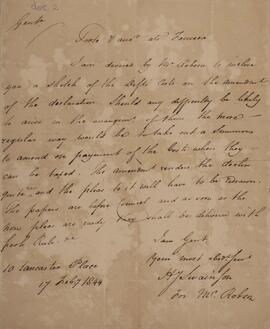 Gent
Porto & anor ats Fonseca
I am desired by Mr. to enclose
you a sketch of the Defts Costs on the amendment
of the declaration Should any difficulty be likely
to arise in the arrangement of them the more
regular way would be to take out a Summons
to amend on payment of the Costs when they
can be taxed. The amendment renders the declon
quite new and the pleas to it will have to be redrawn.
The papers are before Counsel and as soon as the
new pleas are ready shall be delivered with
fresh Rule.
I am Gent.
Your most obedt Servt
H J Swainson
for Mr.
10 Lancaster Place
17 Feby 1844